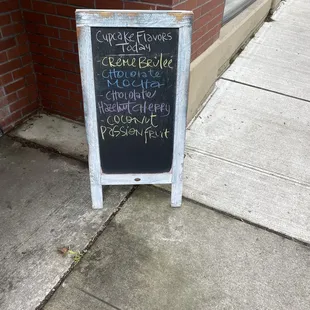 Cupcake Flavors
Today
-Crème Brûlée
-Chocolate
Mocha
-Chocolate
Hazelnut Cherry
-Coconut
Passionfruit